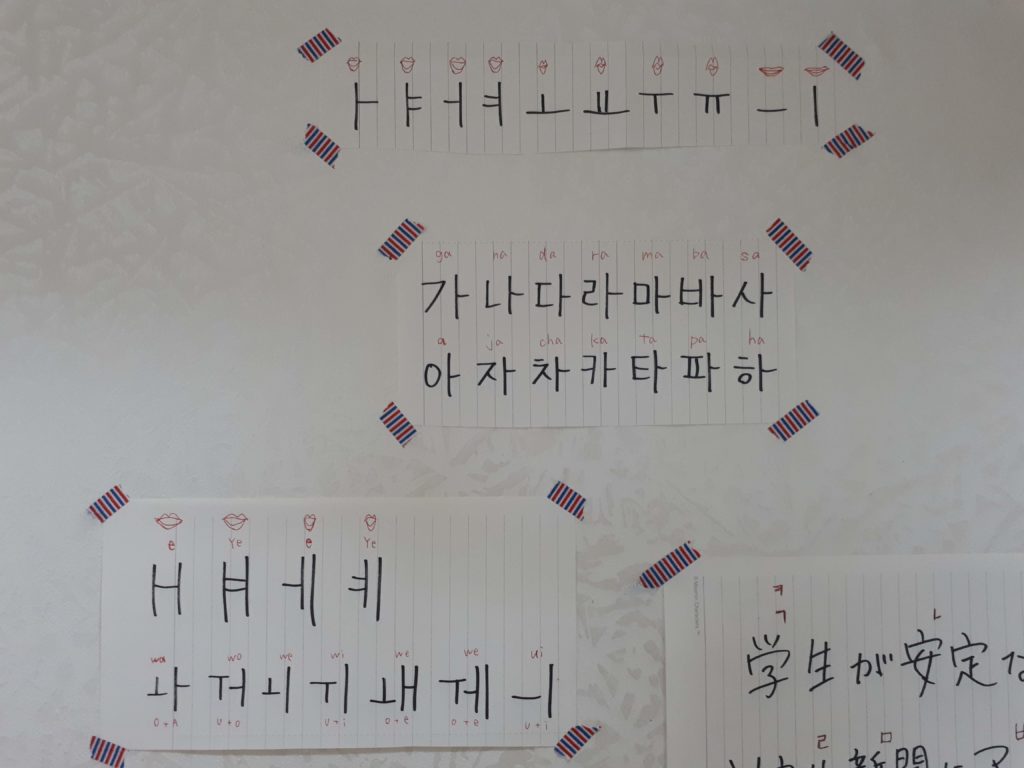 ㅏ ㅑ ㅓ ㅕ ㅗ ㅛ ㅜ ㅠ ㅡ ㅣ
ga na da ra ma ba sa
가 나 다 라 마 바 사
a ja cha ka ta pa ha
아 자 차 카 타 파 하
e Ye e Ye
ㅐ ㅒ ㅔ ㅖ
wa wo we wi we we ui
ㅘ ㅝ ㅚ ㅟ ㅙ ㅞ ㅢ
o+a u+o u+i o+e o+e u+i
ㅋ
ㄱ ㄴ
学生が安定な
ㄹ ㅁ ㅂ
新聞にア